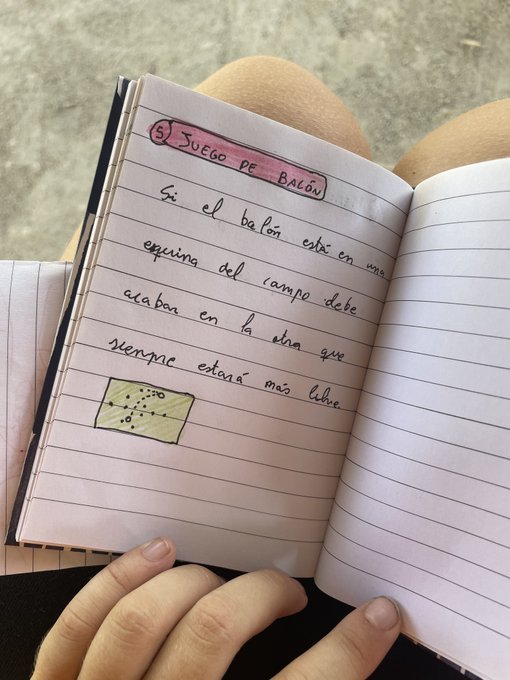 5 JUEGO DE BALÓN
Si el balón está en una
equina del campo debe
acabar en la otra que
siempre estará más libre.